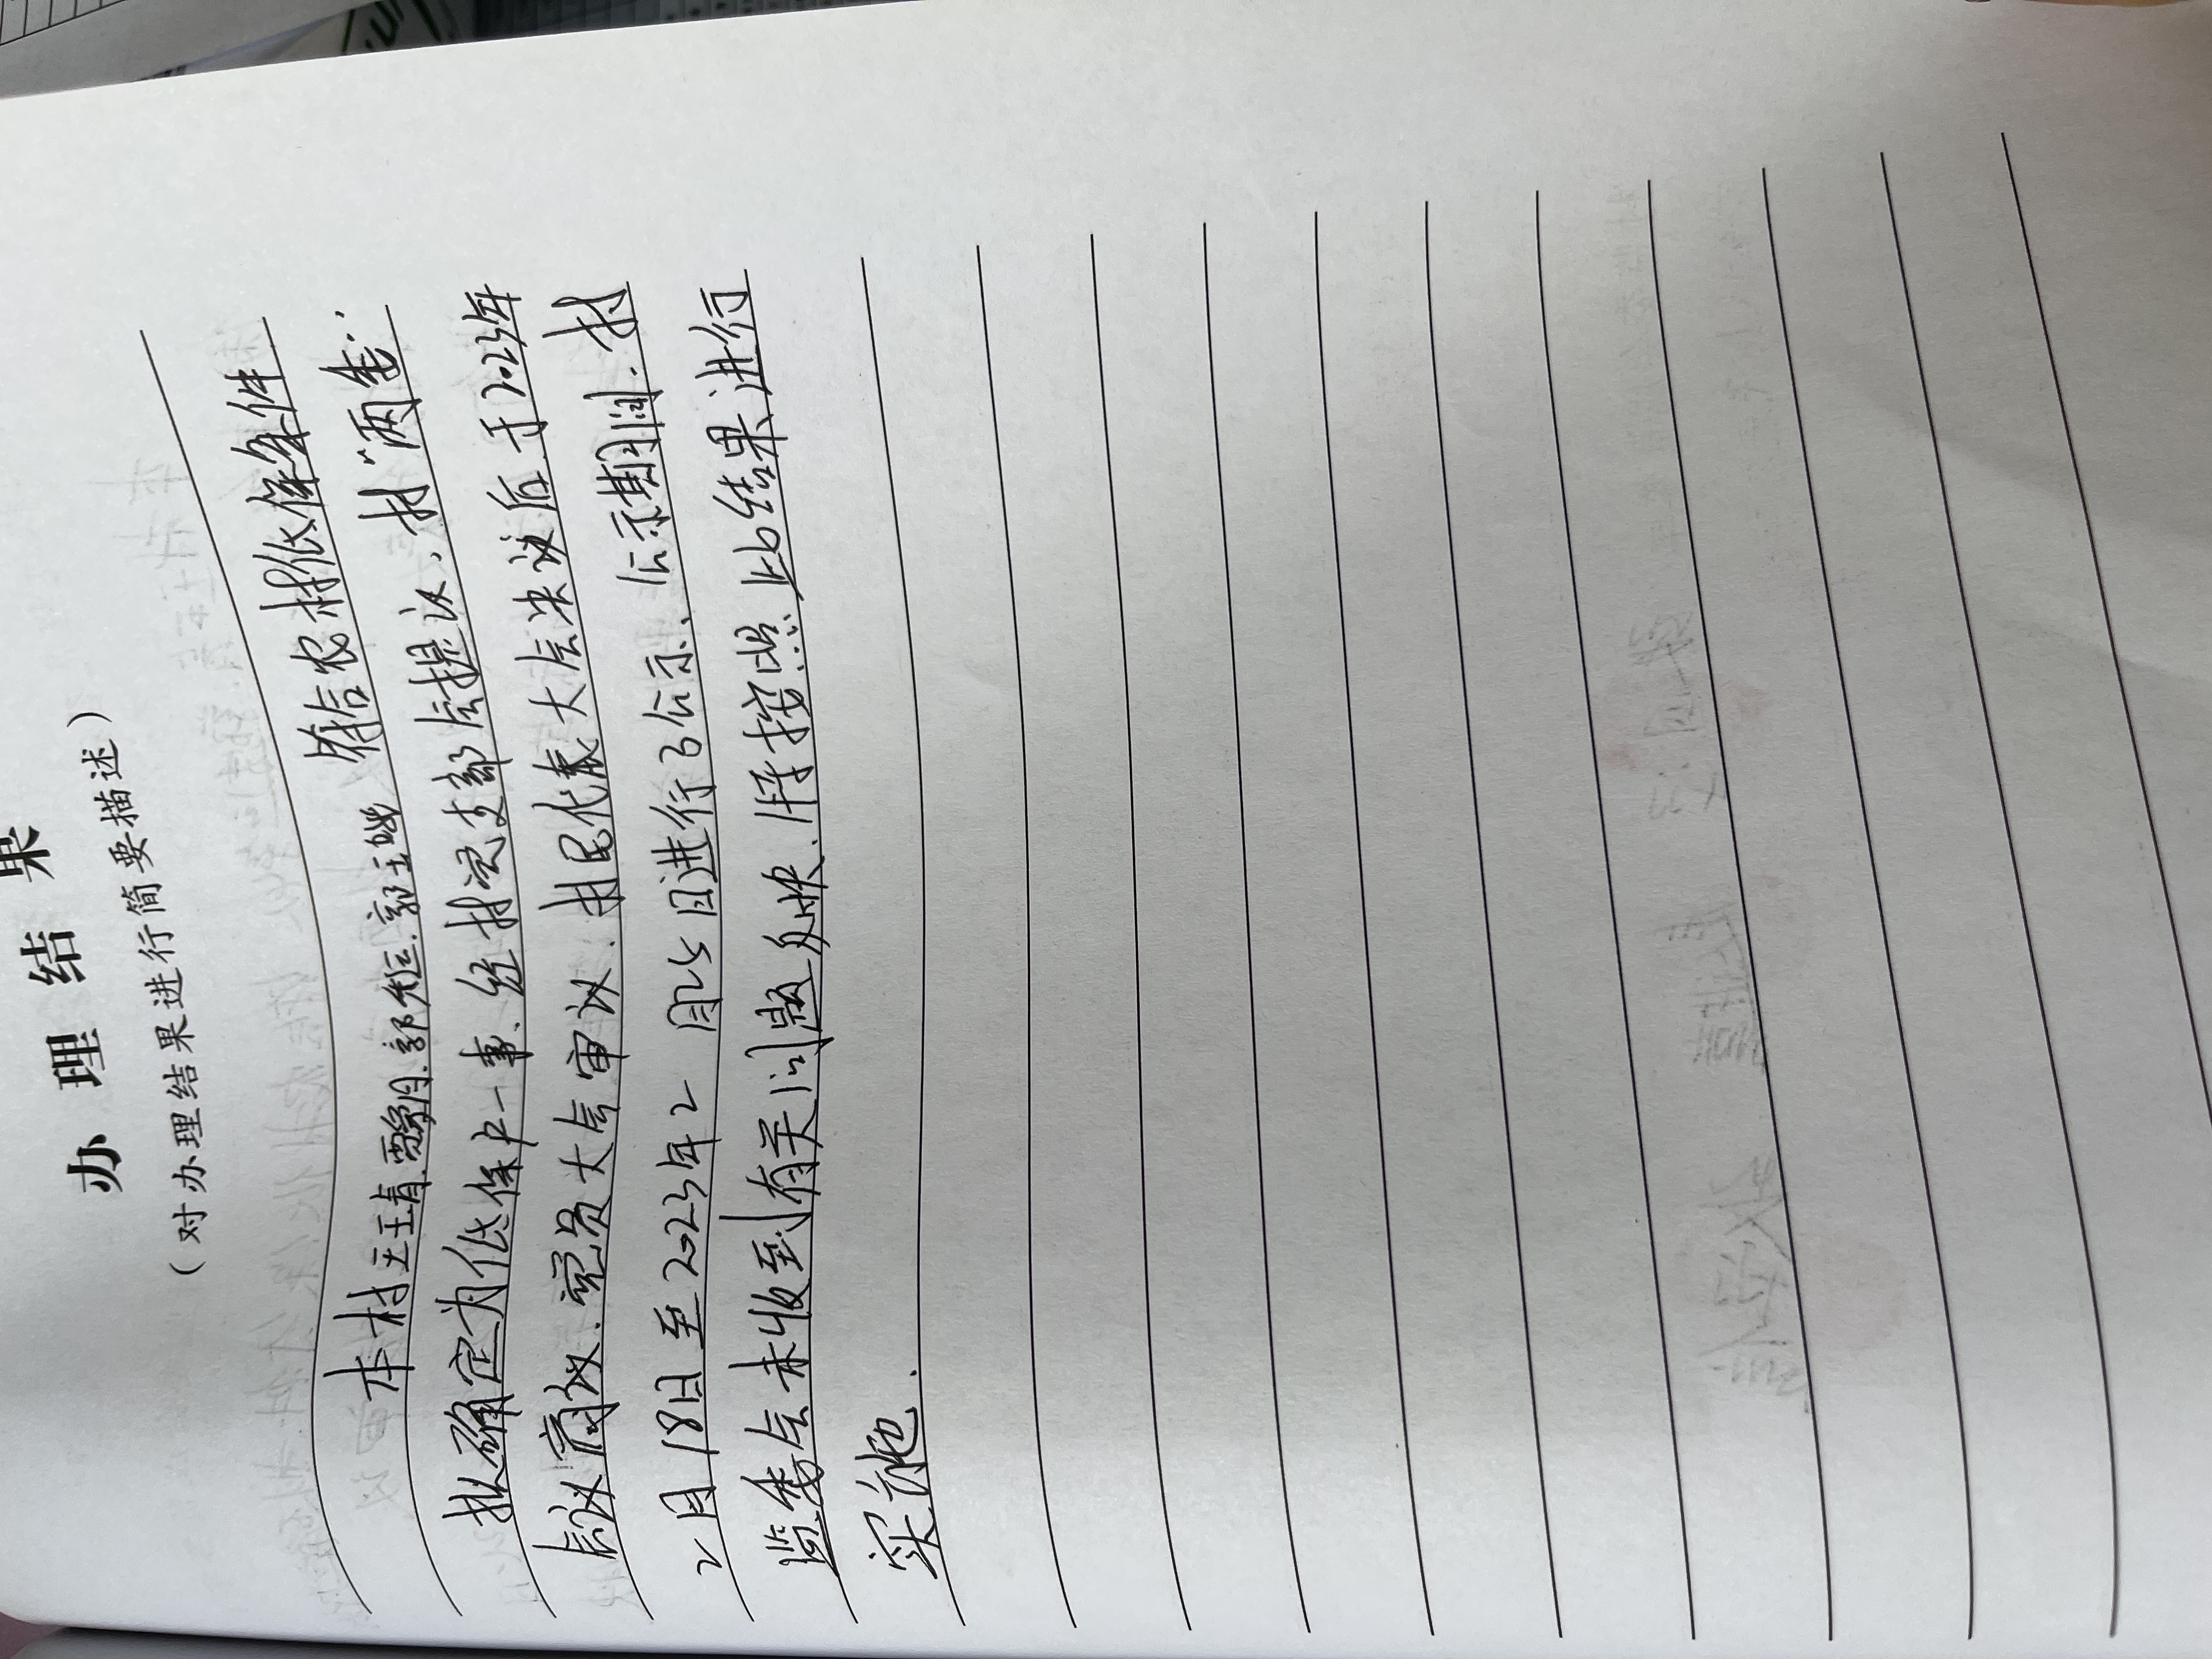 办理结果
（对办理结果进行简要描述）
本村王玉青.贾多月.郭 郭玉 符合农村低保条件
拟确定为低保户一事.经村党支部会提议.村“两委”
会议商议.党员大会审议.村民代表大会决议后于2023年
2月18日至2023年2月25日进行了公示.公示期间.村
监委会未收到有关问题反映.将按照此结果进行
实施.